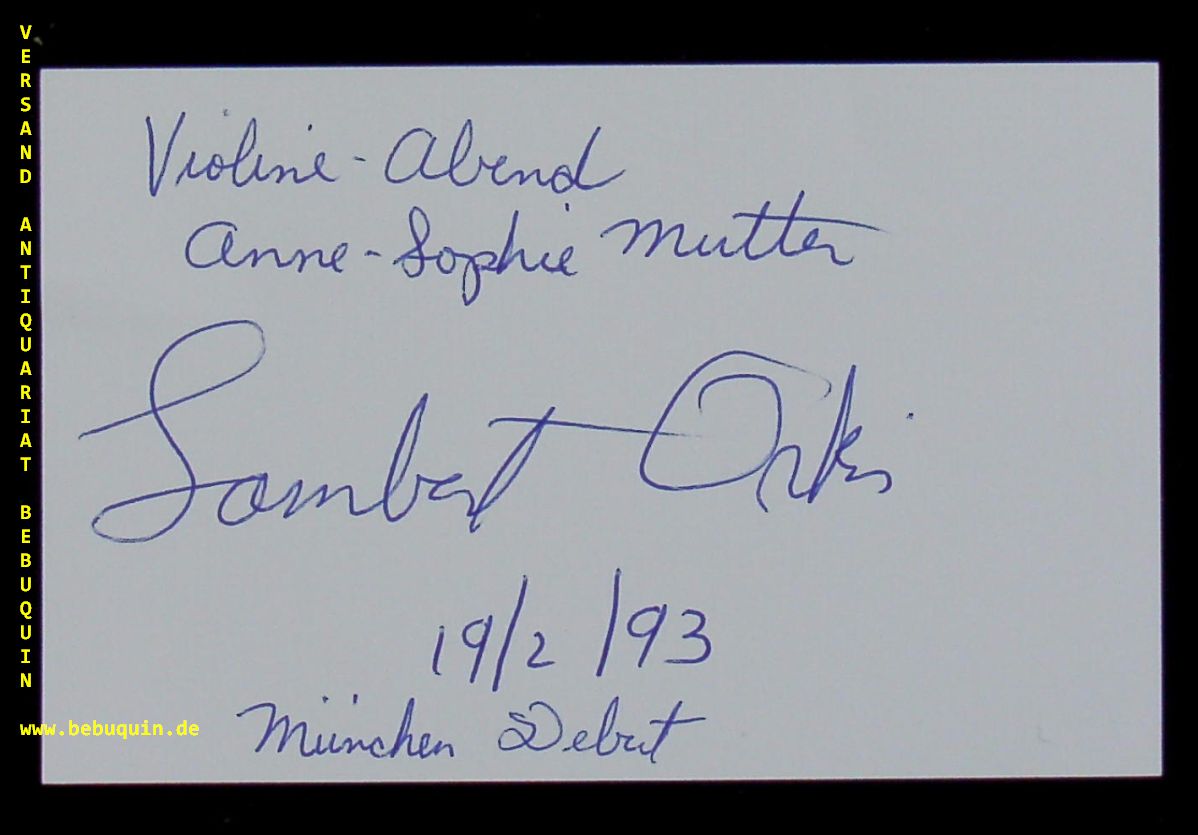 VERSAND ANTIQUARIAT BEBUQUIN
Violine-Abend
Anne-Sophie Mutter
Lambert Orkis
19/2/93
München Debut
www.bebuquin.de